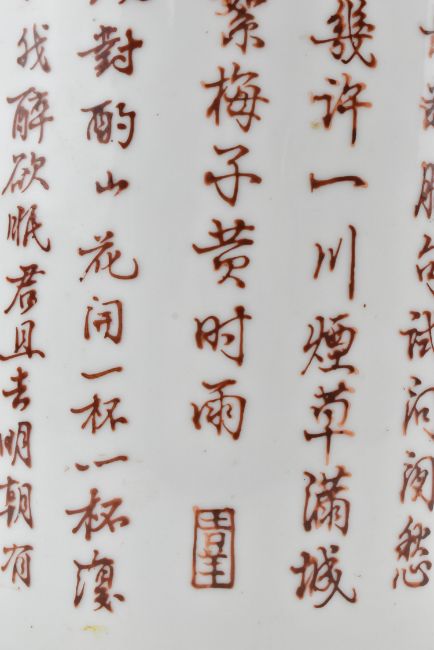 腸句試问闲愁
幾許一川煙草滿城
絮梅子黄时雨
對酌山花開一杯一杯復
我醉欲眠君且去明朝有